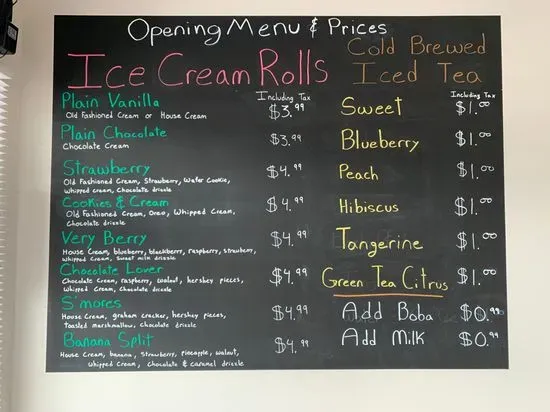 Opening Menu & Prices
Ice Cream Rolls
Including Tax
Plain Vanilla $3.99
Old Fashioned Cream or House Cream
Plain Chocolate $3.99
Chocolate Cream
Strawberry $4.99
Old Fashioned Cream, Strawberry, Wafer Cookie,
Whipped cream, Chocolate drizzle
Cookies & Cream $4.99
Old Fashioned Cream, Oreo, Whipped Cream,
Chocolate drizzle
Very Berry $4.99
House Cream, blueberry, blackberry, raspberry, strawberry,
Whipped Cream, Sweet milk drizzle
Chocolate Lover $4.99
Chocolate Cream, raspberry, walnut, hershey pieces,
Whipped Cream, Chocolate drizzle
S'mores $4.99
House Cream, graham cracker, hershey pieces,
Toasted marshmallow, chocolate drizzle
Banana Split $4.99
House Cream, banana, Strawberry, Pineapple, Walnut,
Whipped Cream, chocolate & caramel drizzle
Cold Brewed
Iced Tea
Including Tax
Sweet $1.00
Blueberry $1.00
Peach $1.00
Hibiscus $1.00
Tangerine $1.00
Green Tea Citrus $1.00
Add Boba $0.99
Add Milk $0.99